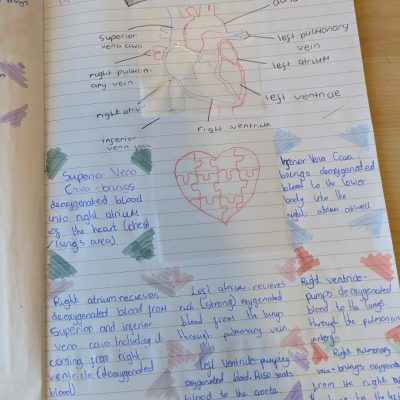 aorta
Superior
vena cava
left pulmonary
vein
left atrium
right pulmon-
ary vein
right atrium
left ventricle
inferior
vena cava
right ventricle
Superior Vena
Cava - brings
deoxygenated blood
into right atrium
of the heart (chest
/lungs area)
Inferior Vena Cava
brings deoxygenated
blood to the lower
body into the
right atrium aswell
Right atrium - recieves
deoxygenated blood from
Superior and inferior
vena cava. Including it
coming from right
ventricle (deoxygenated
blood)
Left atrium - recieves
rich (strong) oxygenated
blood from the lungs
through pulmonary vein.
Right ventricle -
pumps deoxygenated
blood to the lungs
through the pulmonary
artery
Left ventricle pumping
oxygenated blood. Also sends
blood to the aorta.
Right Pulmonary
vein - brings oxygenated
from the right
to the left